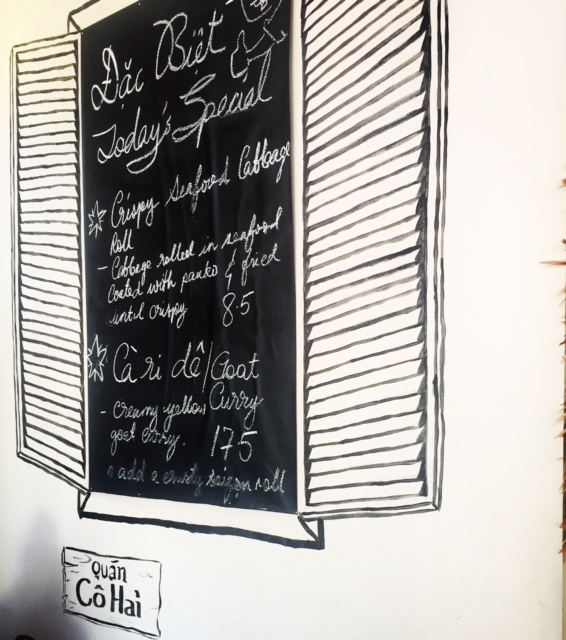 Đặc Biệt
Today's Special
Crispy Seafood Cabbage
Roll
- Cabbage rolled in seafood
Coated with panko & fried
until crispy 8.5
Cà ri dê/Goat
Curry
- creamy yellow
goat curry. 17.5
add a crusty saigon roll
Quán
Cô Hai